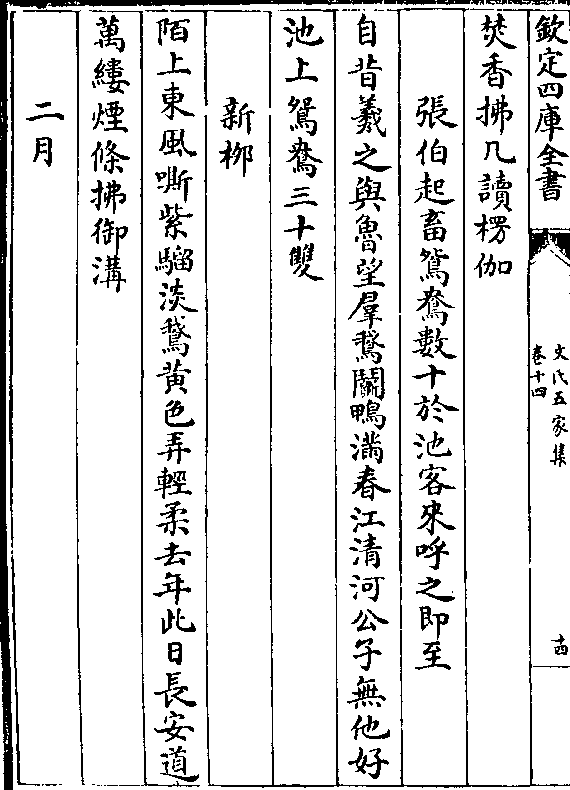 欽定四庫全書
文氏五家集
卷十四
十四
焚香拂几讀楞伽
張伯起畜鴛鴦數十於池客來呼之即至
自昔羲之與魯望羣鵞鬬鴨滿春江清河公子無他好
池上鴛鴦三十雙
新栁
陌上東風嘶紫騮淡鵞黄色弄輕柔去年此日長安道
萬縷煙條拂御溝
二月